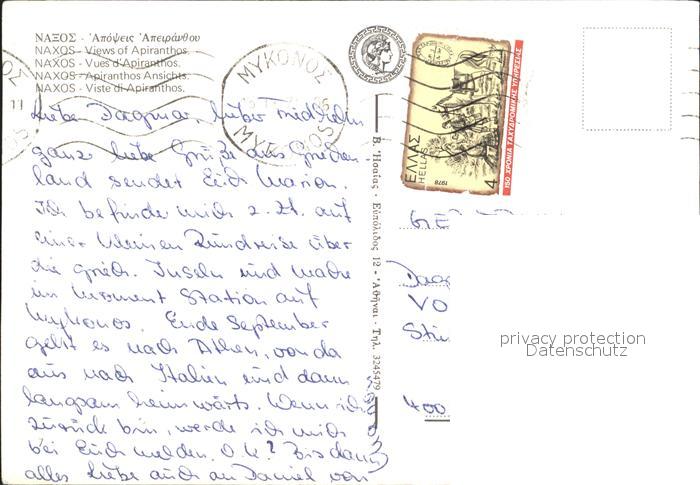 ΝΑΞΟΣ - Ἀπόψεις Ἀπειράνθου
NAXOS - Views of Apiranthos.
NAXOS - Vues d'Apiranthos.
NAXOS - Apiranthos Ansichts.
NAXOS - Viste di Apiranthos.
ΜΥΚΟΝΟΣ
MYKONOS
Liebe Dagmar, lieber Friedhelm
ganz liebe Grüße aus Griechen-
land sendet Euch Marion.
Ich befinde mich z. Zt. auf
einer kleinen Rundreise über
die griech. Inseln und mache
im Moment Station auf
Mykonos. Ende September
geht es nach Athen, von da
aus nach Italien und dann
langsam heimwärts. Wenn ich
zurück bin, werde ich mich
bei Euch melden. O.K.? Bis dann
alles Liebe auch an Daniel von
Β. Ἡσαΐας - Εὐπόλιδος 12 - Ἀθῆναι - Τηλ. 3245479
ΕΛΛΑΣ
HELLAS
1978
4
150 ΧΡΟΝΙΑ ΤΑΧΥΔΡΟΜΙΚΗΣ ΥΠΗΡΕΣΙΑΣ
Dag
VO
400
privacy protection
Datenschutz